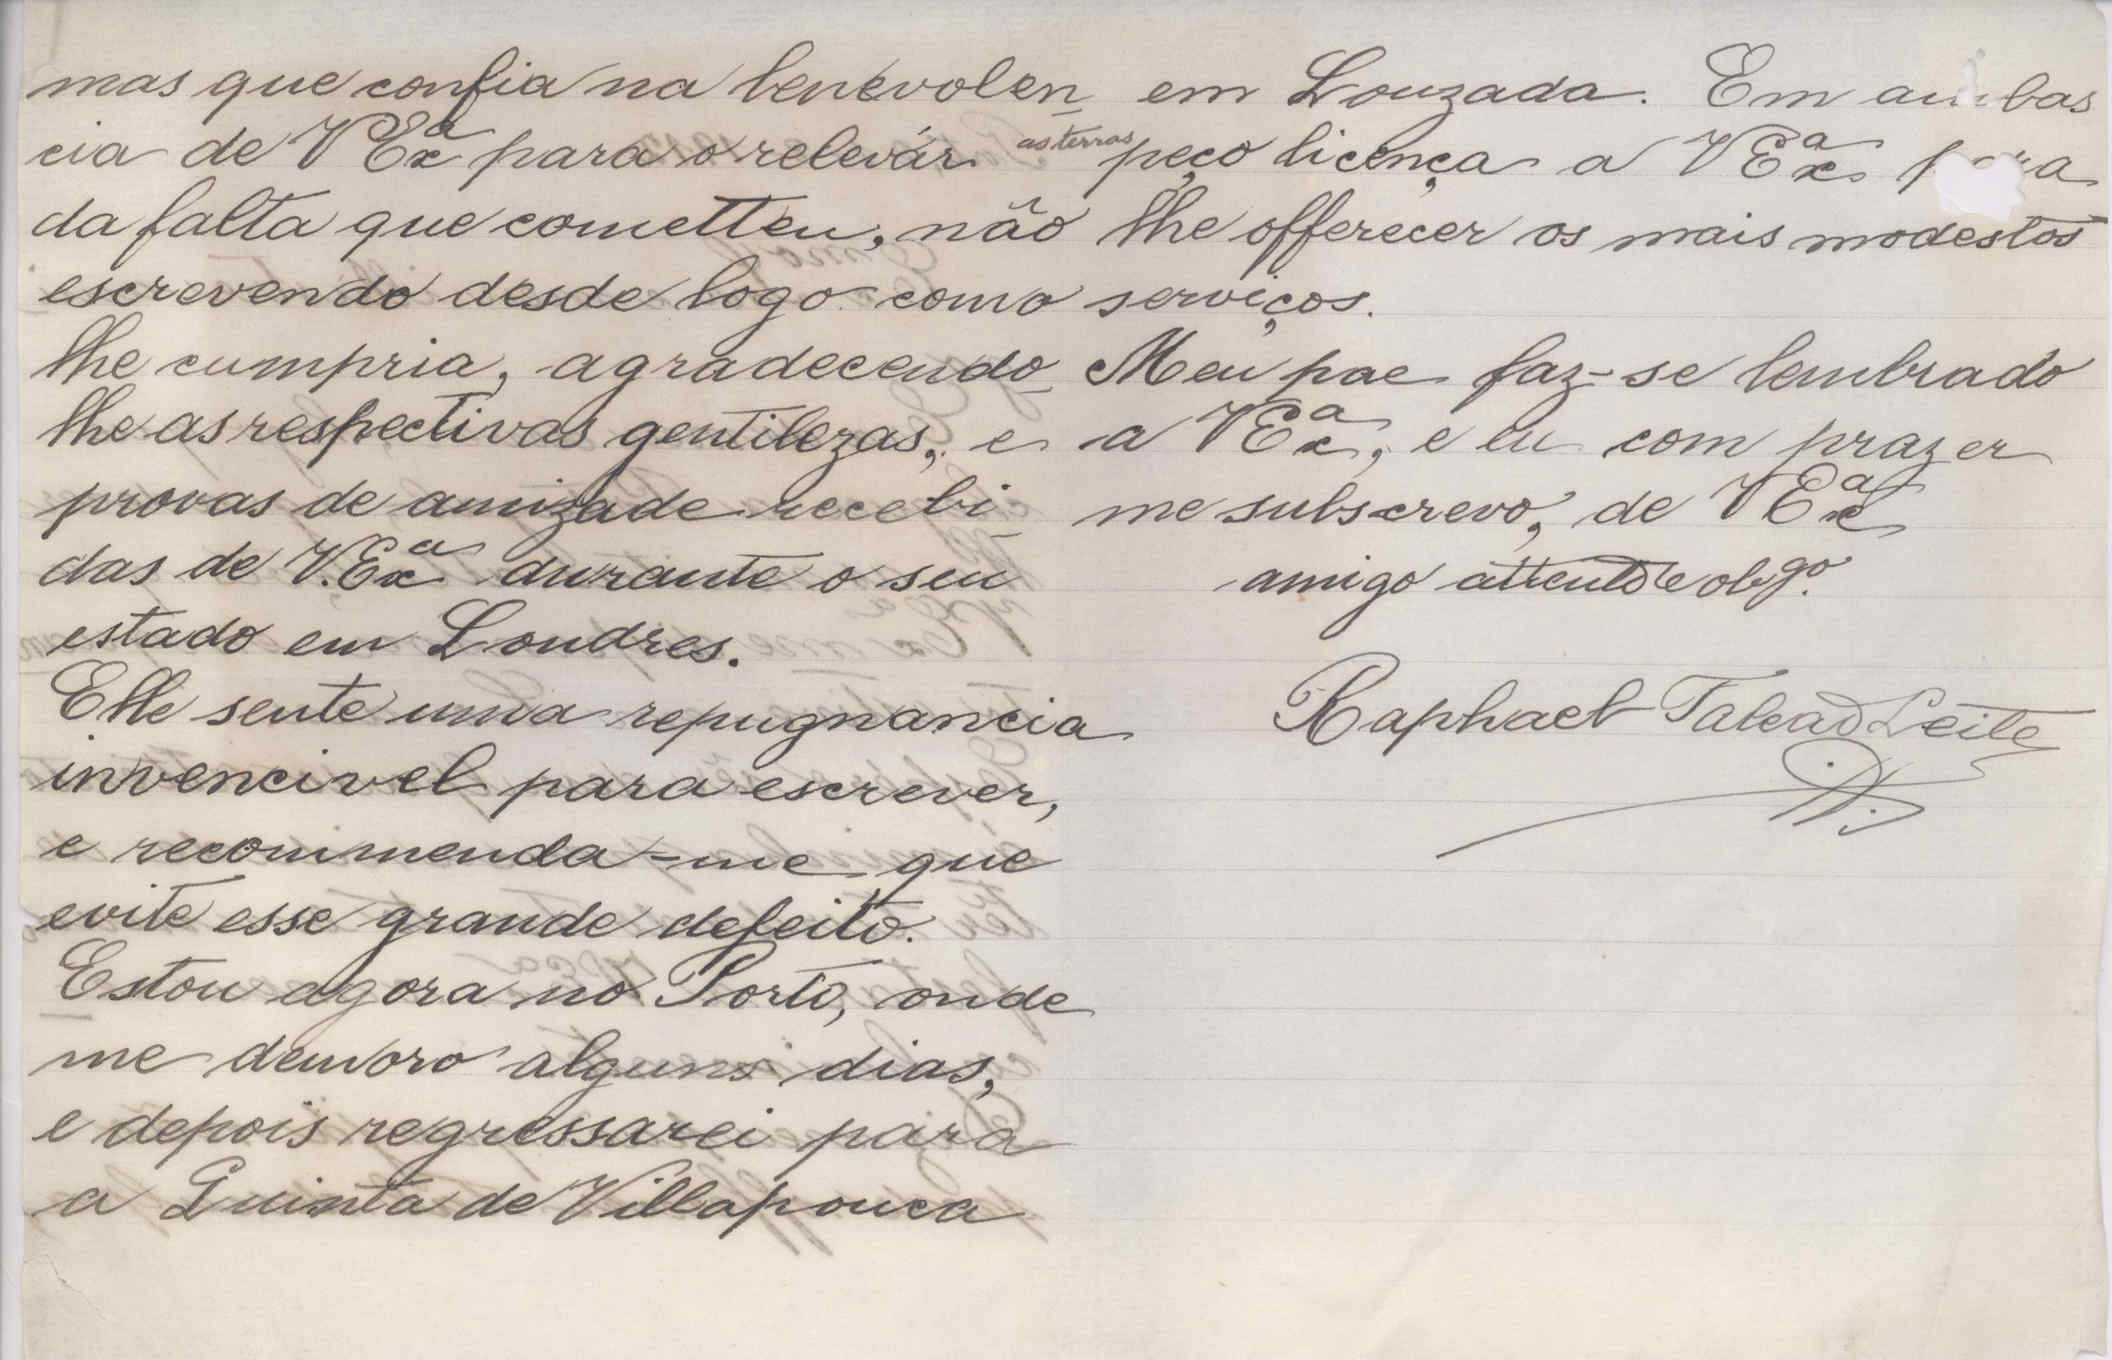 mas que confia na benevolen_
cia de VEx.ª para o relevár
da falta que cometteu, não
escrevendo desde logo como
lhe cumpria, agradecendo_
lhe as respectivas gentilezas, e
provas de amizade recebi_
das de V.Ex.ª durante o seu
estado em Londres.
Elle sente uma repugnancia
invencivel para escrever,
e recommenda-me que
evite esse grande defeito.
Estou agora no Porto, onde
me demoro alguns dias,
e depois regressarei para
a Quinta de Villapouca
em Louzada. Em ambas
as terras peço licença a VEx.ª para
lhe offerecer os mais modestos
serviços.
Meu pae faz-se lembrado
a VEx.ª, e eu com prazer
me subscrevo, de VEx.ª
amigo attento e obgº.
Raphael Leite